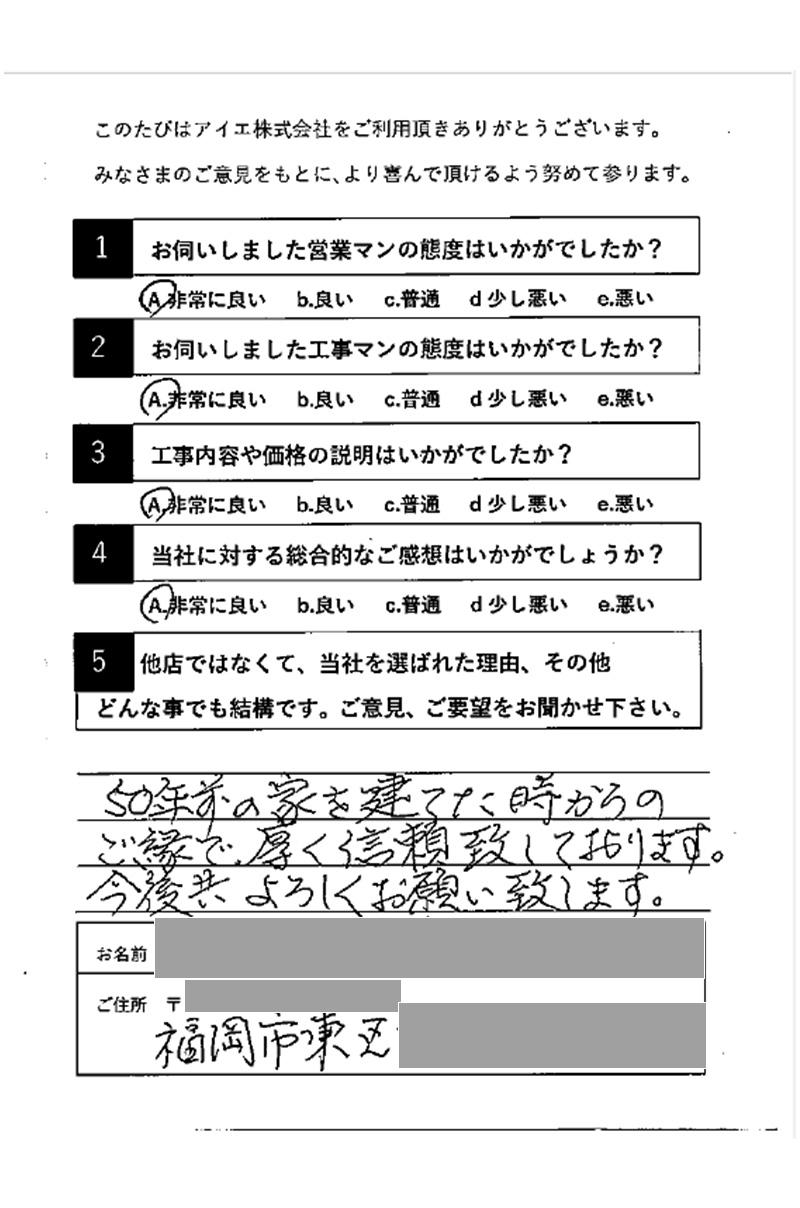 このたびはアイエ株式会社をご利用頂きありがとうございます。
みなさまのご意見をもとに、より喜んで頂けるよう努めて参ります。
1 お伺いしました営業マンの態度はいかがでしたか？
A.非常に良い b.良い c.普通 d 少し悪い e.悪い
2 お伺いしました工事マンの態度はいかがでしたか？
A.非常に良い b.良い c.普通 d 少し悪い e.悪い
3 工事内容や価格の説明はいかがでしたか？
A.非常に良い b.良い c.普通 d 少し悪い e.悪い
4 当社に対する総合的なご感想はいかがでしょうか？
A.非常に良い b.良い c.普通 d 少し悪い e.悪い
5 他店ではなくて、当社を選ばれた理由、その他
どんな事でも結構です。ご意見、ご要望をお聞かせ下さい。
50年前の家を建てた時からの
ご縁で、厚く信頼致しております。
今後共よろしくお願い致します。
お名前
ご住所 〒
福岡市東区